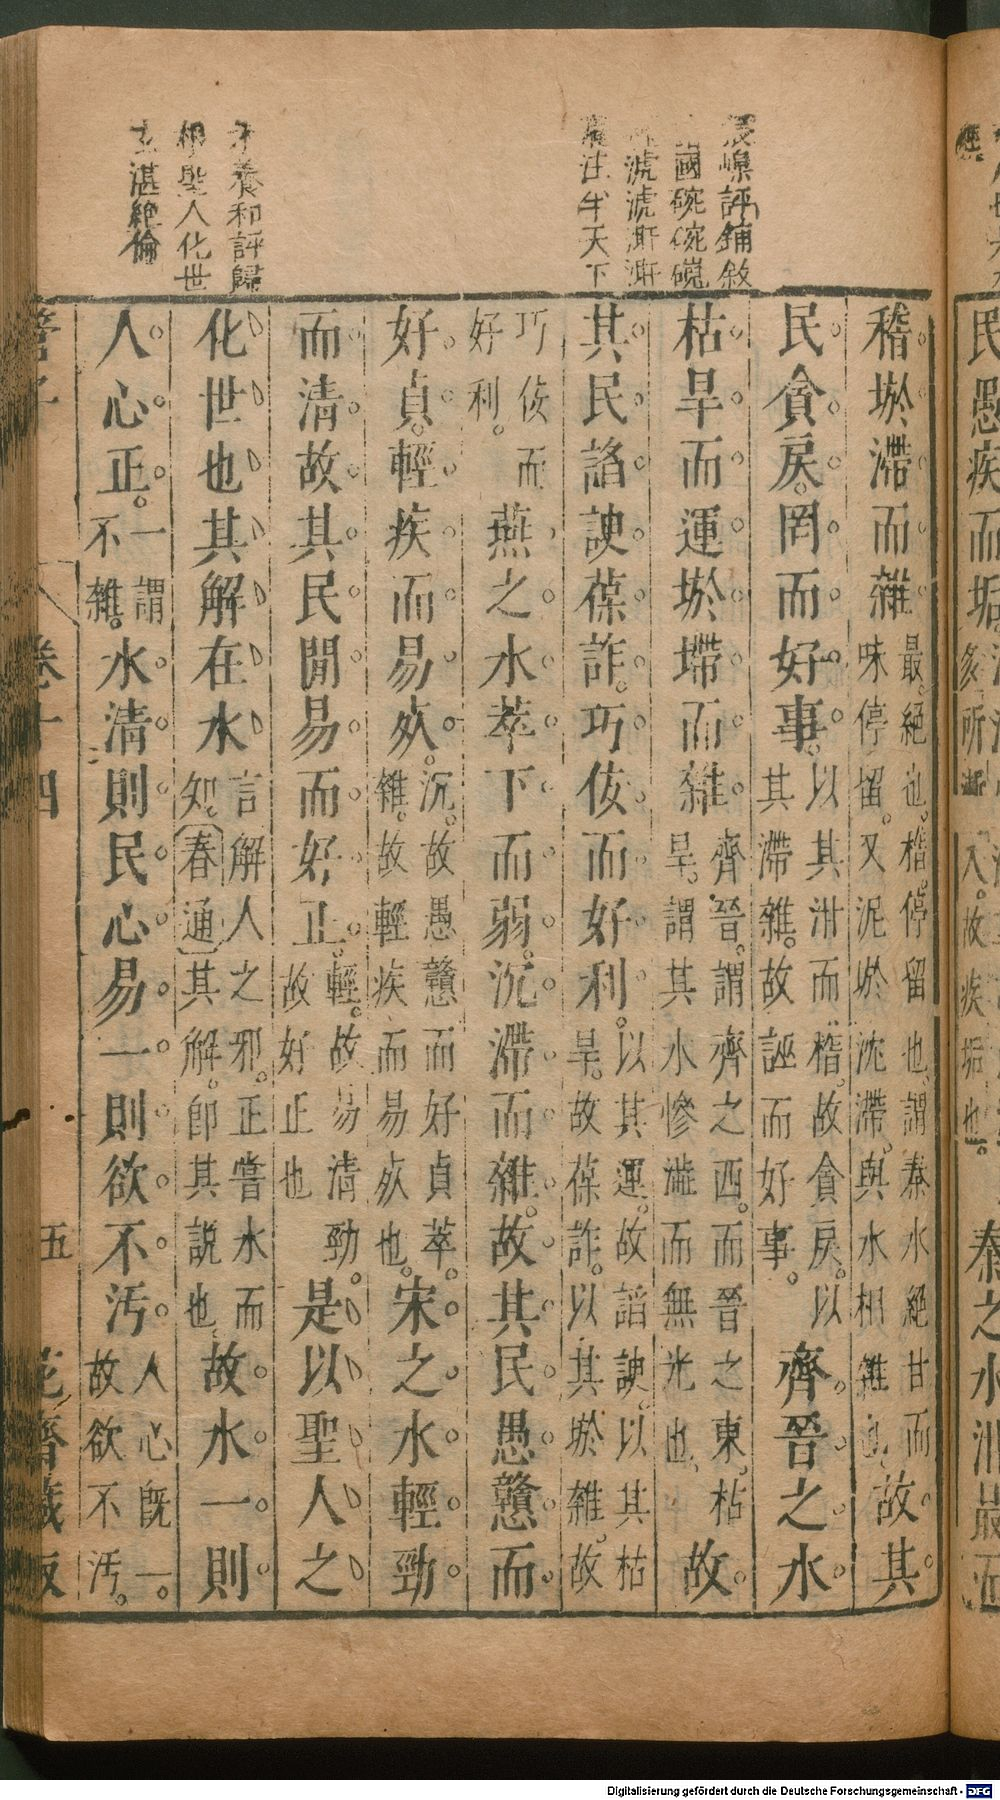 評鋪敘
國碗碗磈
淲淲澌澌
注牛天下
養和評歸
聖人化世
湛絕倫
稽㳿滯而雜最絕也稽停留也謂秦水絕甘而味停留又泥㳿沈滯與水相雜也故其
民貪戾罔而好事以其泔而稽故貪戾以其滯雜故誣而好事齊晉之水
枯旱而運㳿墆而雜齊晉謂齊之西而晉之東枯旱謂其水慘澁而無光也故
其民諂諛葆詐巧佞而好利以其運故諂諛以其枯旱故葆詐以其㳿雜故
巧佞而好利燕之水萃下而弱沉滯而雜故其民愚戇而
好貞輕疾而易𣦸沉故愚戇而好貞萃雜故輕疾而易𣦸也宋之水輕勁
而清故其民閒易而好正輕故易清勁故好正也是以聖人之
化世也其解在水言解人之邪正嘗水而知春通其解即其說也故水一則
人心正一謂不雜水清則民心易一則欲不污人心既一故欲不污
管子
卷十四
五
花齋藏板
民愚疾而垢
入故疾垢也
秦之水泔最
Digitalisierung gefördert durch die Deutsche Forschungsgemeinschaft - DFG